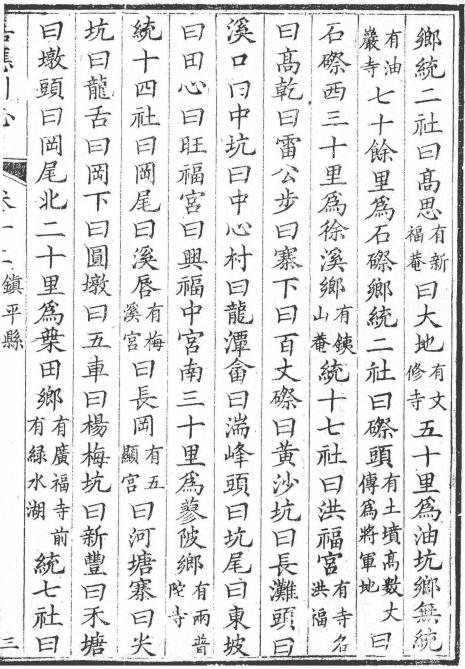 鄉統二社曰髙思有新福菴曰大地有文修寺五十里爲油坑鄉無統
有油巖寺七十餘里爲石磜鄉統二社曰磜頭有土墳髙數丈傳爲將軍地曰
石磜西三十里爲徐溪鄉有銕山菴統十七社曰洪福宮有寺名洪福
曰髙乾曰雷公步曰寨下曰百丈磜曰黃沙坑曰長灘頭曰
溪口曰中坑曰中心村曰龍潭畬曰湍峰頭曰坑尾曰東坡
曰田心曰旺福宮曰興福中宮南三十里爲蓼陂鄉有兩普陀寺
統十四社曰岡尾曰溪唇有梅溪宮曰長岡有五顯宮曰河塘寨曰尖
坑曰龍舌曰岡下曰圓墩曰五車曰楊梅坑曰新豐曰禾塘
曰墩頭曰岡尾北二十里爲葉田鄉有廣福寺前有緑水湖統七社曰
卷十二鎮平縣
三